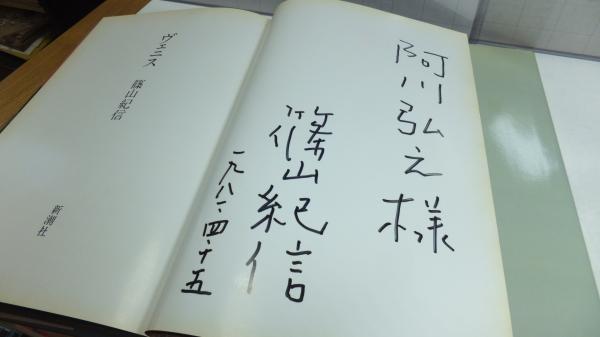 阿川弘之様
篠山紀信
一九八一・四・十五
ヴェニス 篠山紀信
新潮社